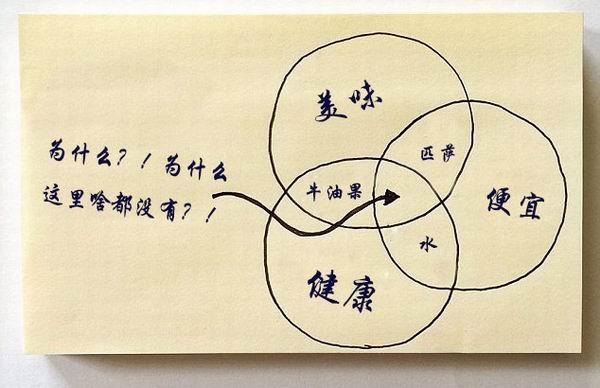 美味
匹萨
为什么？！为什么
这里啥都没有？！
牛油果
便宜
水
健康